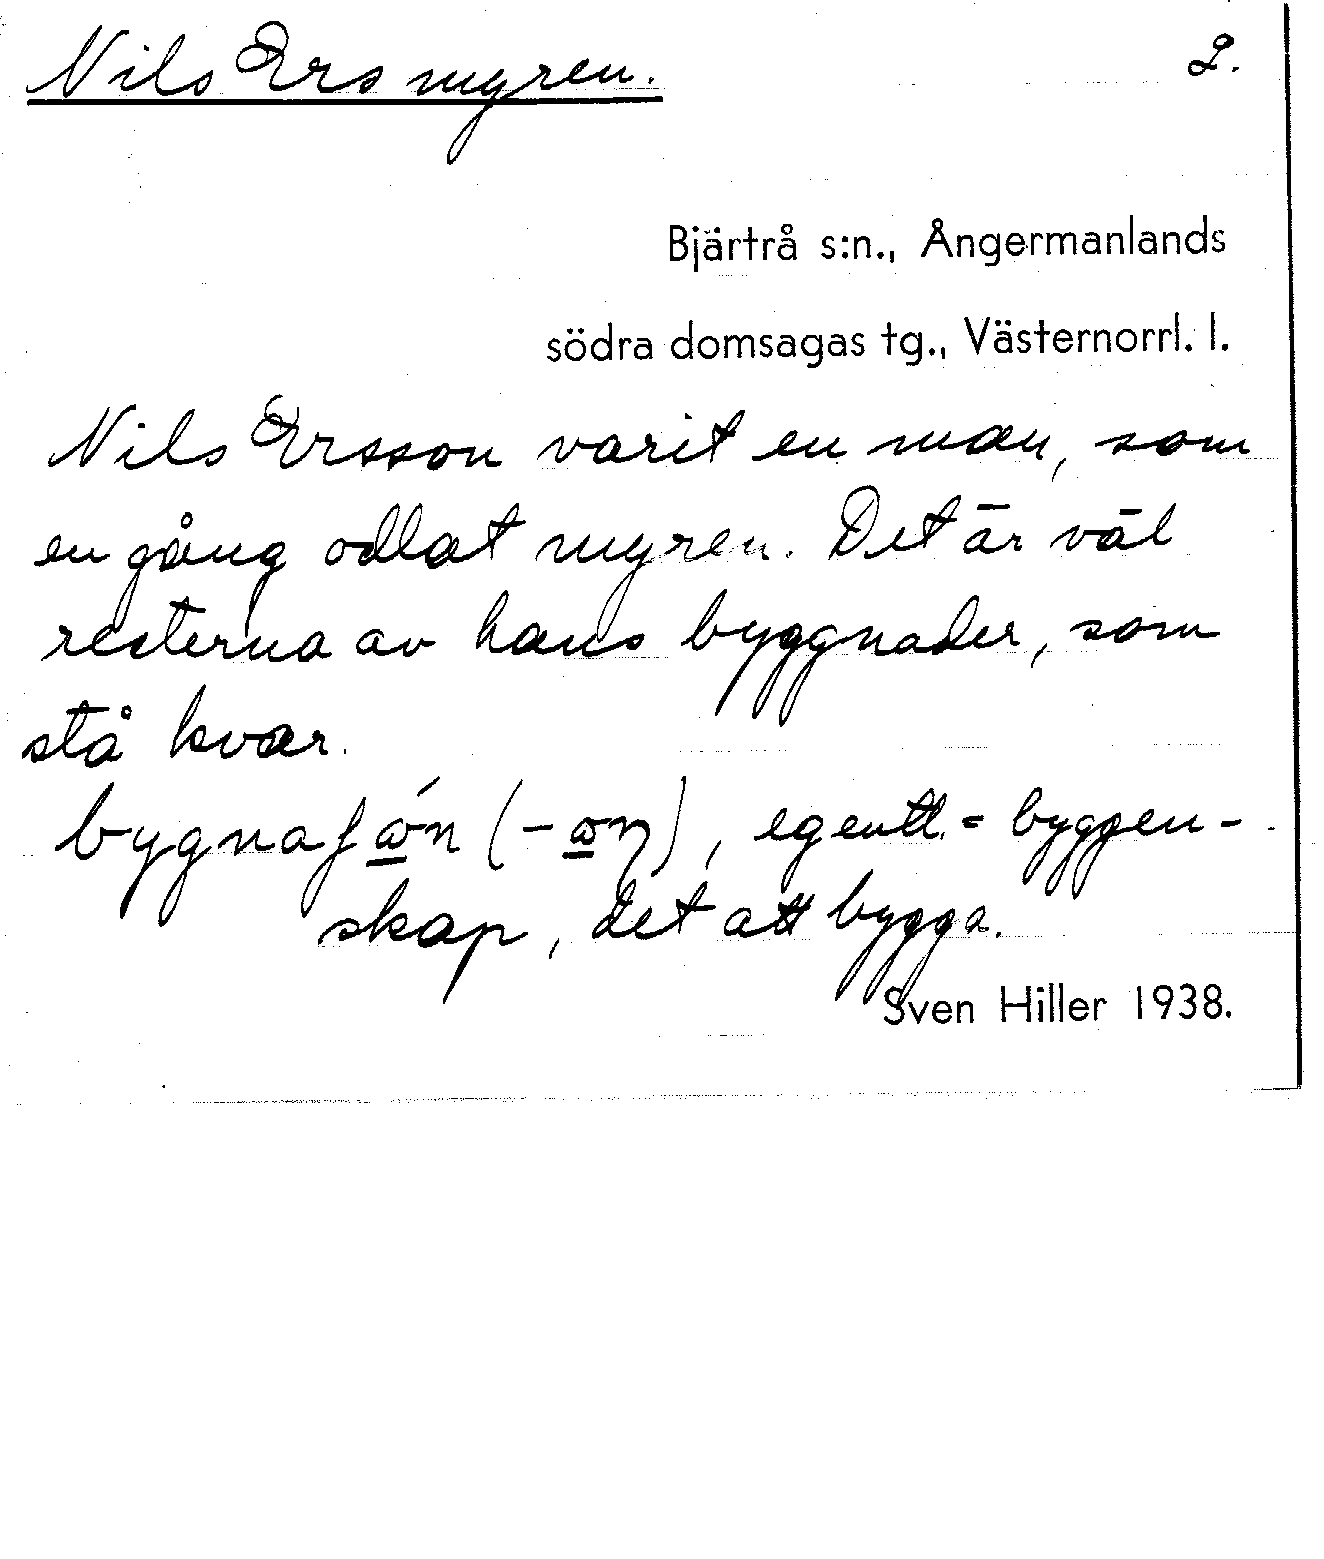 Nils Ersmyren. 2.
Bjärtrå s:n., Ångermanlands
södra domsagas tg., Västernorrl. l.
Nils Ersson varit en man, som
en gång odlat myren. Det är väl
resterna av hans byggnader, som
stå kvar.
egentl. = byggen-
skap, det att bygga.
Sven Hiller 1938.